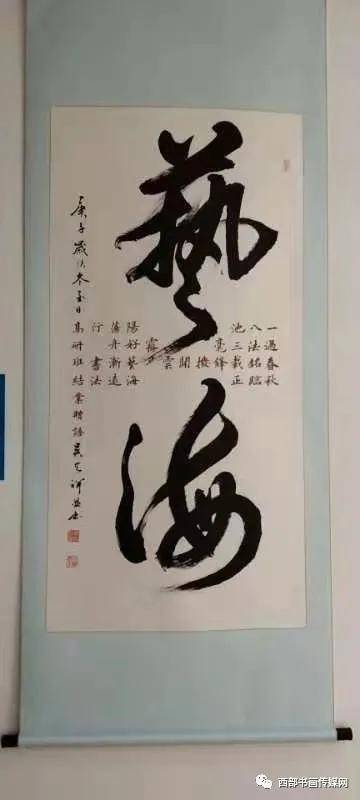 藝海
一過春秋
八法銘臨
池三載正
毫鋒
撥
開
雲
霧夕
陽好藝海
蕩舟漸遠
行 書法
庚子歲次冬至日高研班結業贈語
西部书画传媒网